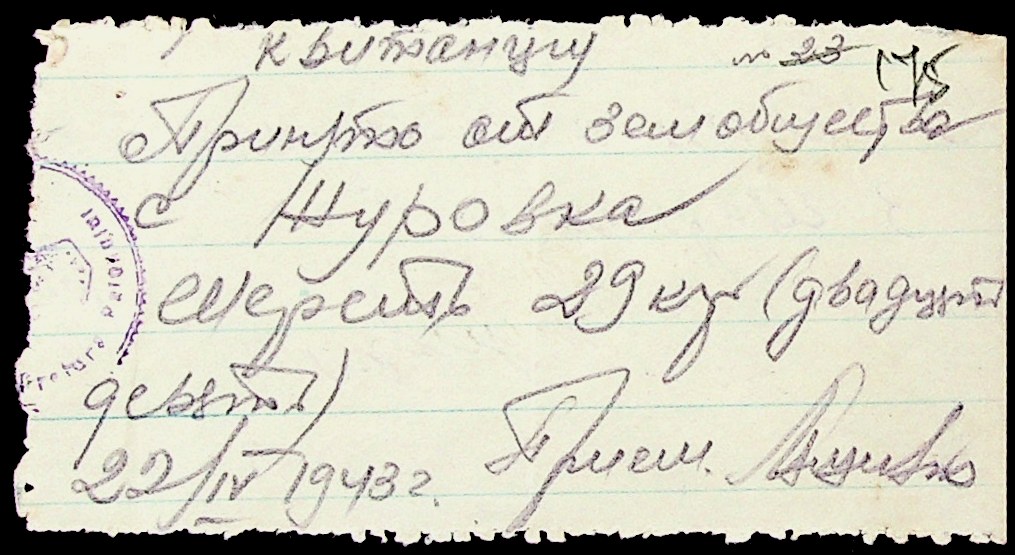 Квитанция № 23
Принято отземобщества
с Журовка
Шерсть 29 кг (двадцять
девять)
22/IV 1943 г. Прием.